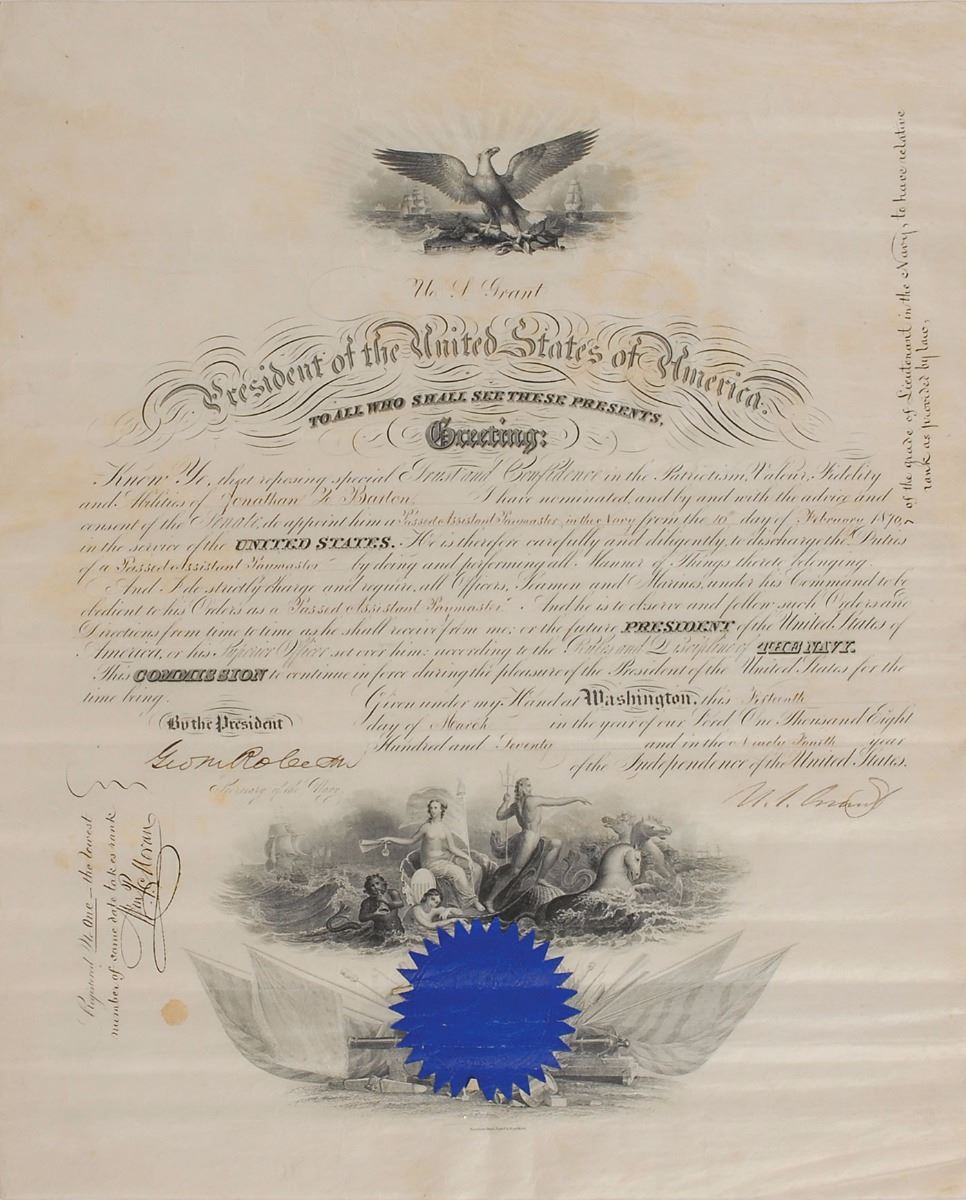 U. S. Grant
President of the United States of America.
TO ALL WHO SHALL SEE THESE PRESENTS,
Greeting:
Know Ye, that reposing special Trust and Confidence in the Patriotism, Valour, Fidelity
and Abilities of Jonathan Q. Barton I have nominated, and by and with the advice and
consent of the Senate, do appoint him a Passed Assistant Paymaster, in the Navy from the 10th day of February 1870,
in the service of the UNITED STATES. He is therefore carefully and diligently, to discharge the Duties
of a Passed Assistant Paymaster by doing and performing all Manner of Things thereto belonging
And I do strictly charge and require, all Officers, Seamen and Marines, under his Command to be
obedient to his Orders as a Passed Assistant Paymaster. And he is to observe and follow such Orders and
Directions from time to time as he shall receive from me; or the future PRESIDENT of the United States of
America, or his Superior Officer set over him; according to the Rules and Discipline of THE NAVY.
This COMMISSION to continue in force during the pleasure of the President of the United States for the
time being.
Given under my Hand at Washington, this
day of March in the year of our Lord One Thousand Eight
Hundred and Seventy and in the Ninety Fourth year
of the Independence of the United States.
By the President
Geo M Robeson
Secretary of the Navy
U. S. Grant
of the grade of Lieutenant in the Navy, to have relative
rank as provided by law,
Registered No One – the lowest
number of same date takes rank
Moran